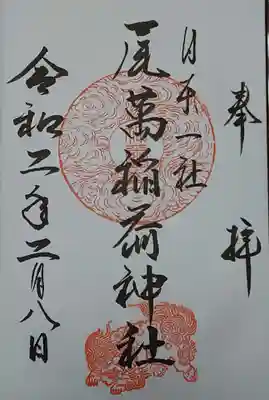 奉拝
日本一社
尾萬稲荷神社
令和二年二月八日